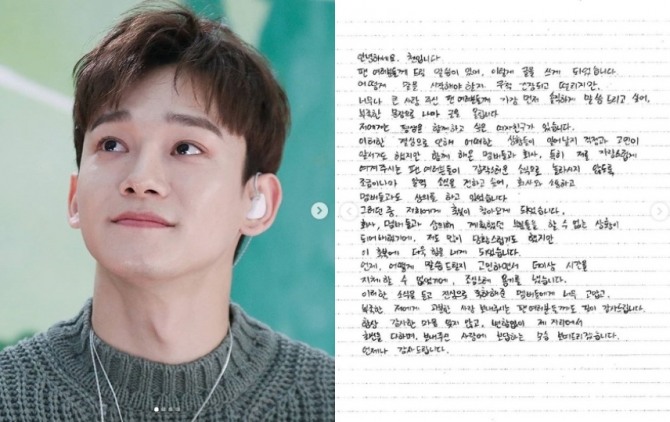 안녕하세요. 첸입니다
팬 여러분들께 드릴 말씀이 있어, 이렇게 글을 쓰게 되었습니다.
어떻게 말을 시작해야할지 무척 긴장되고 떨리지만,
너무나 큰 사랑 주신 팬 여러분들께 가장 먼저 솔직하게 말씀 드리고 싶어,
부족한 문장으로 나마 글을 올립니다
저에게는 평생을 함께하고 싶은 여자친구가 있습니다.
이러한 결심으로 인해 어떠한 상황들이 일어날지 걱정과 고민이
앞서기도 했지만 함께 해온 멤버들과 회사, 특히 저를 자랑스럽게
여겨주시는 팬 여러분들이 갑작스러운 소식으로 놀라시지 않도록
조금이나마 일찍 소식을 전하고 싶어, 회사와 소통하고
멤버들과도 상의를 하고 있었습니다
그러던 중, 저희에게 축복이 찾아오게 되었습니다.
회사, 멤버들과 상의해 계획했던 부분들을 할 수 없는 상황이
되어버렸기에, 저도 많이 당황스럽기도 했지만
이 축복에 더욱 힘을 내게 되었습니다.
언제, 어떻게 말씀드릴지 고민하면서 더이상 시간을
지체 할 수 없었기에, 조심스레 용기를 냈습니다.
이러한 소식을 듣고 진심으로 축하해준 멤버들에게 너무 고맙고,
부족한 저에게 과분한 사랑 보내주시는 팬 여러분들께도 깊이 감사드립니다.
항상 감사한 마음 잊지 않고, 변함없이 제 자리에서
최선을 다하며, 보내주신 사랑에 보답하는 모습 보여드리겠습니다.
언제나 감사드립니다.